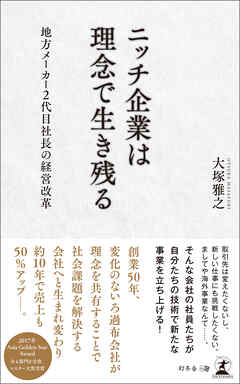 ニッチ企業は
理念で生き残る
地方メーカー2代目社長の経営改革
OTSUKA MASAYUKI
大塚雅之
取引先は変えたくないし、
新しい仕事にも挑戦したくない、
ましてや海外事業なんて……、
そんな会社の社員たちが
自分たちの技術で新たな
事業を立ち上げる!
創業50年、
変化のないろ過布会社が
理念を共有することで
社会課題を解決する
会社へと生まれ変わり
約10年で売上も
50%アップ――。
2017年
Asia Golden Star
Award
幻冬舎